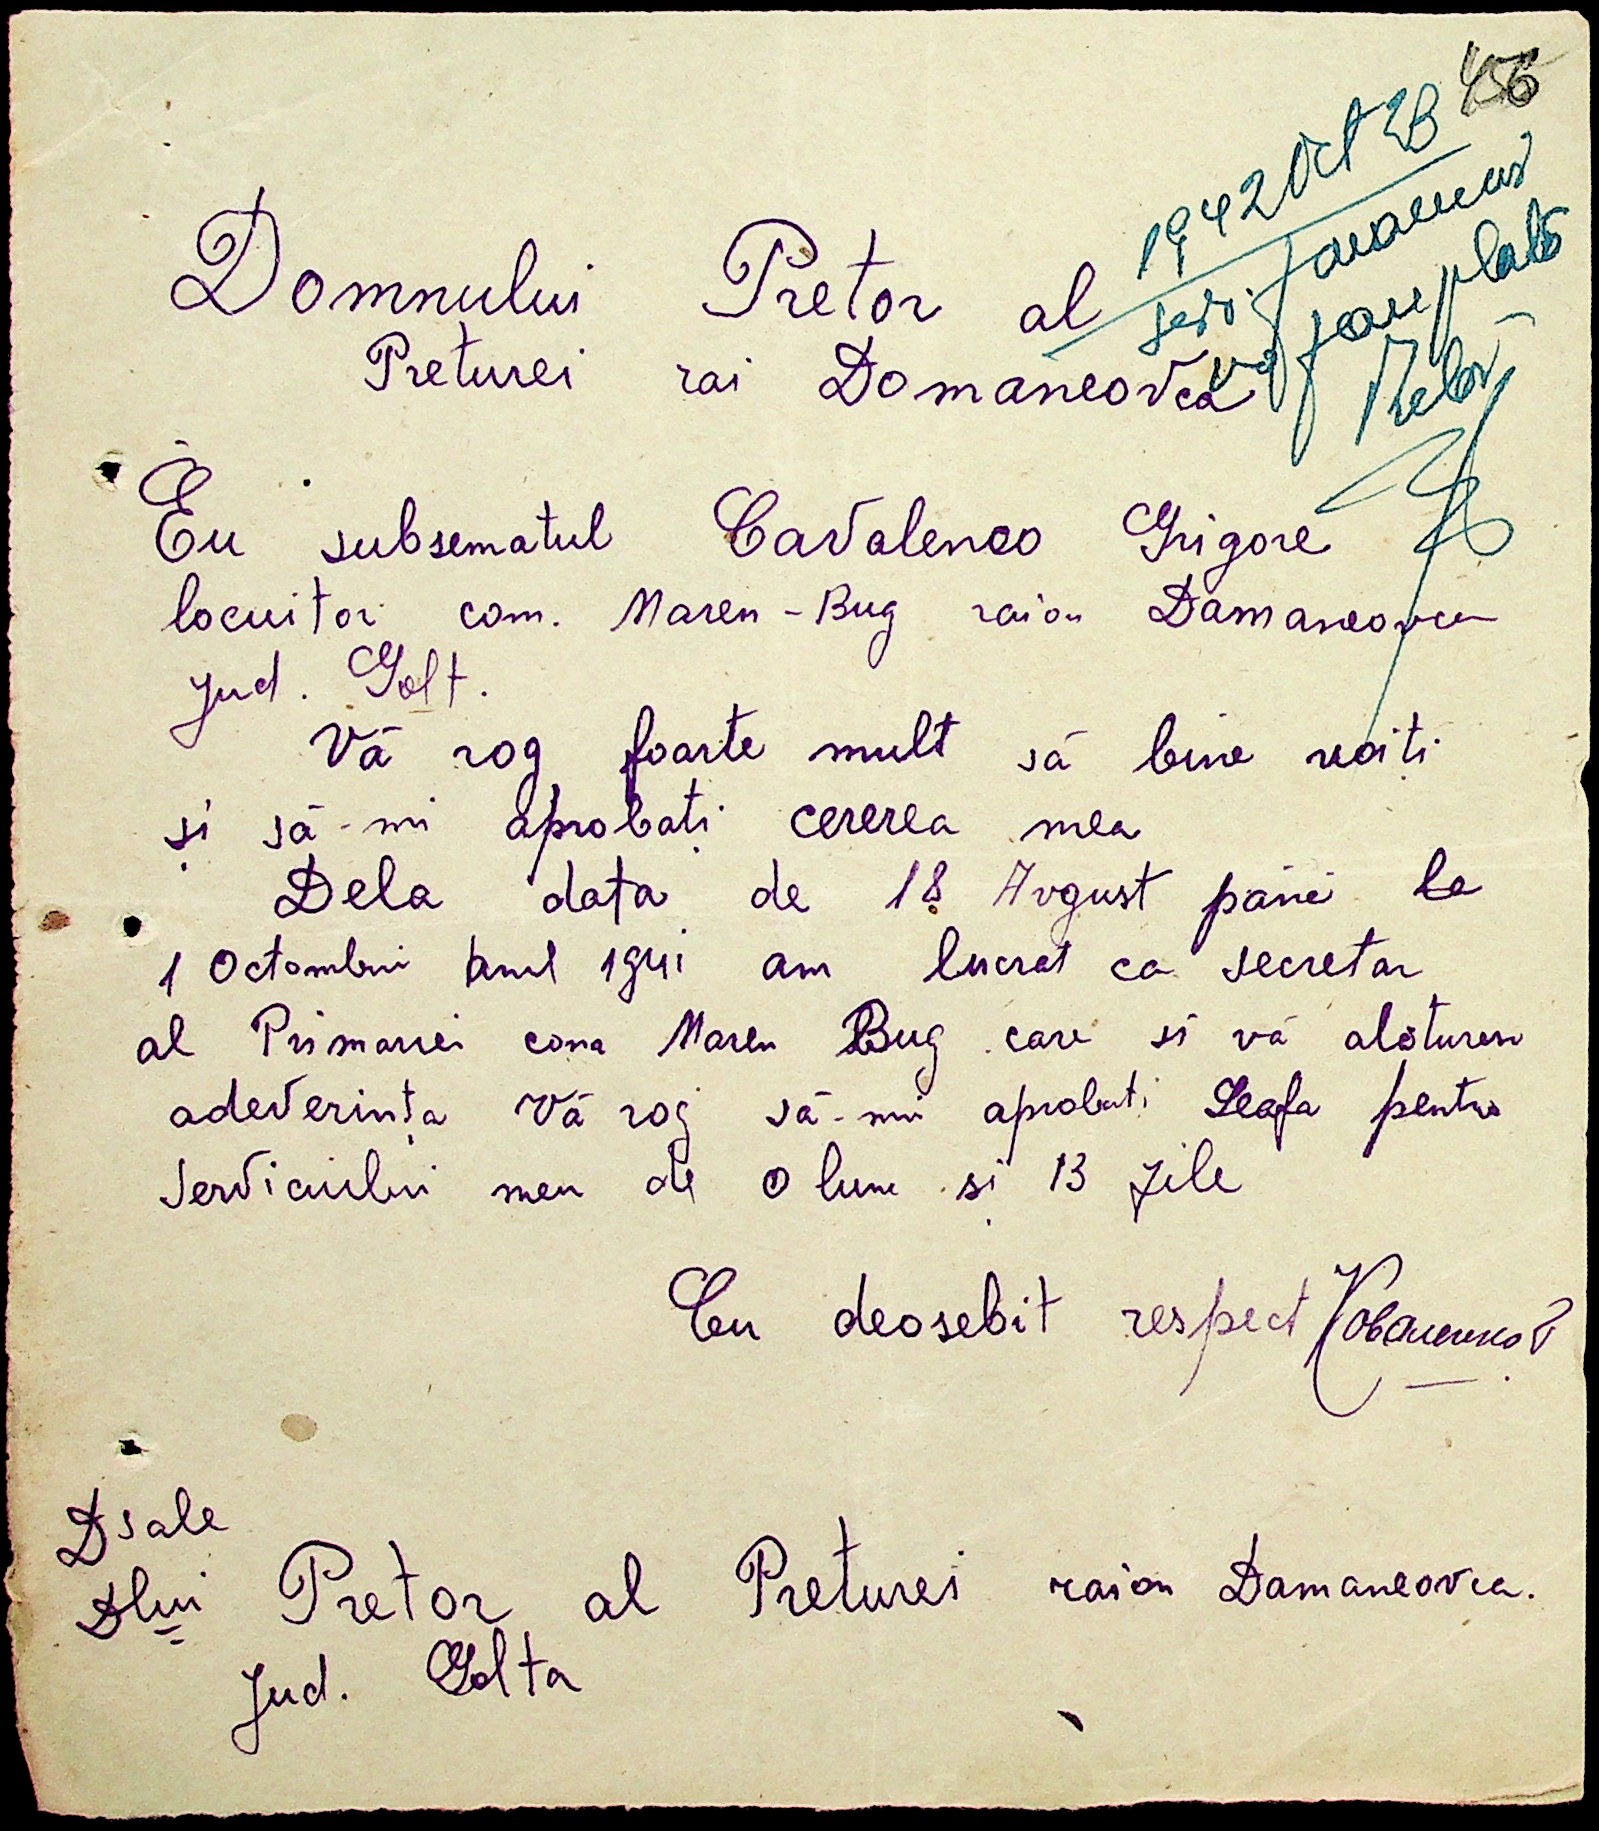 456
1942 Oct 23
Domnului Pretor al
Preturei rai Domaneovca
Eu subsematul Cavalenco Grigore
locuitor com. Maren-Bug raion Damaneovca
jud. Golt.
Vă rog foarte mult să bine voiți
și să-mi aprobați cererea mea
Dela data de 18 Avgust pănă la
1 Octombri anul 1941 am lucrat ca secretar
al Primariei coma Maren Bug care si vă aloturen
adeverința Vă rog să-mi aprobati Leafa pentru
Serviciului meu de o lună și 13 zile
Cu deosebit respect Коваленков
Dsale
Dlui Pretor al Preturei raion Damaneovca.
Jud. Golta